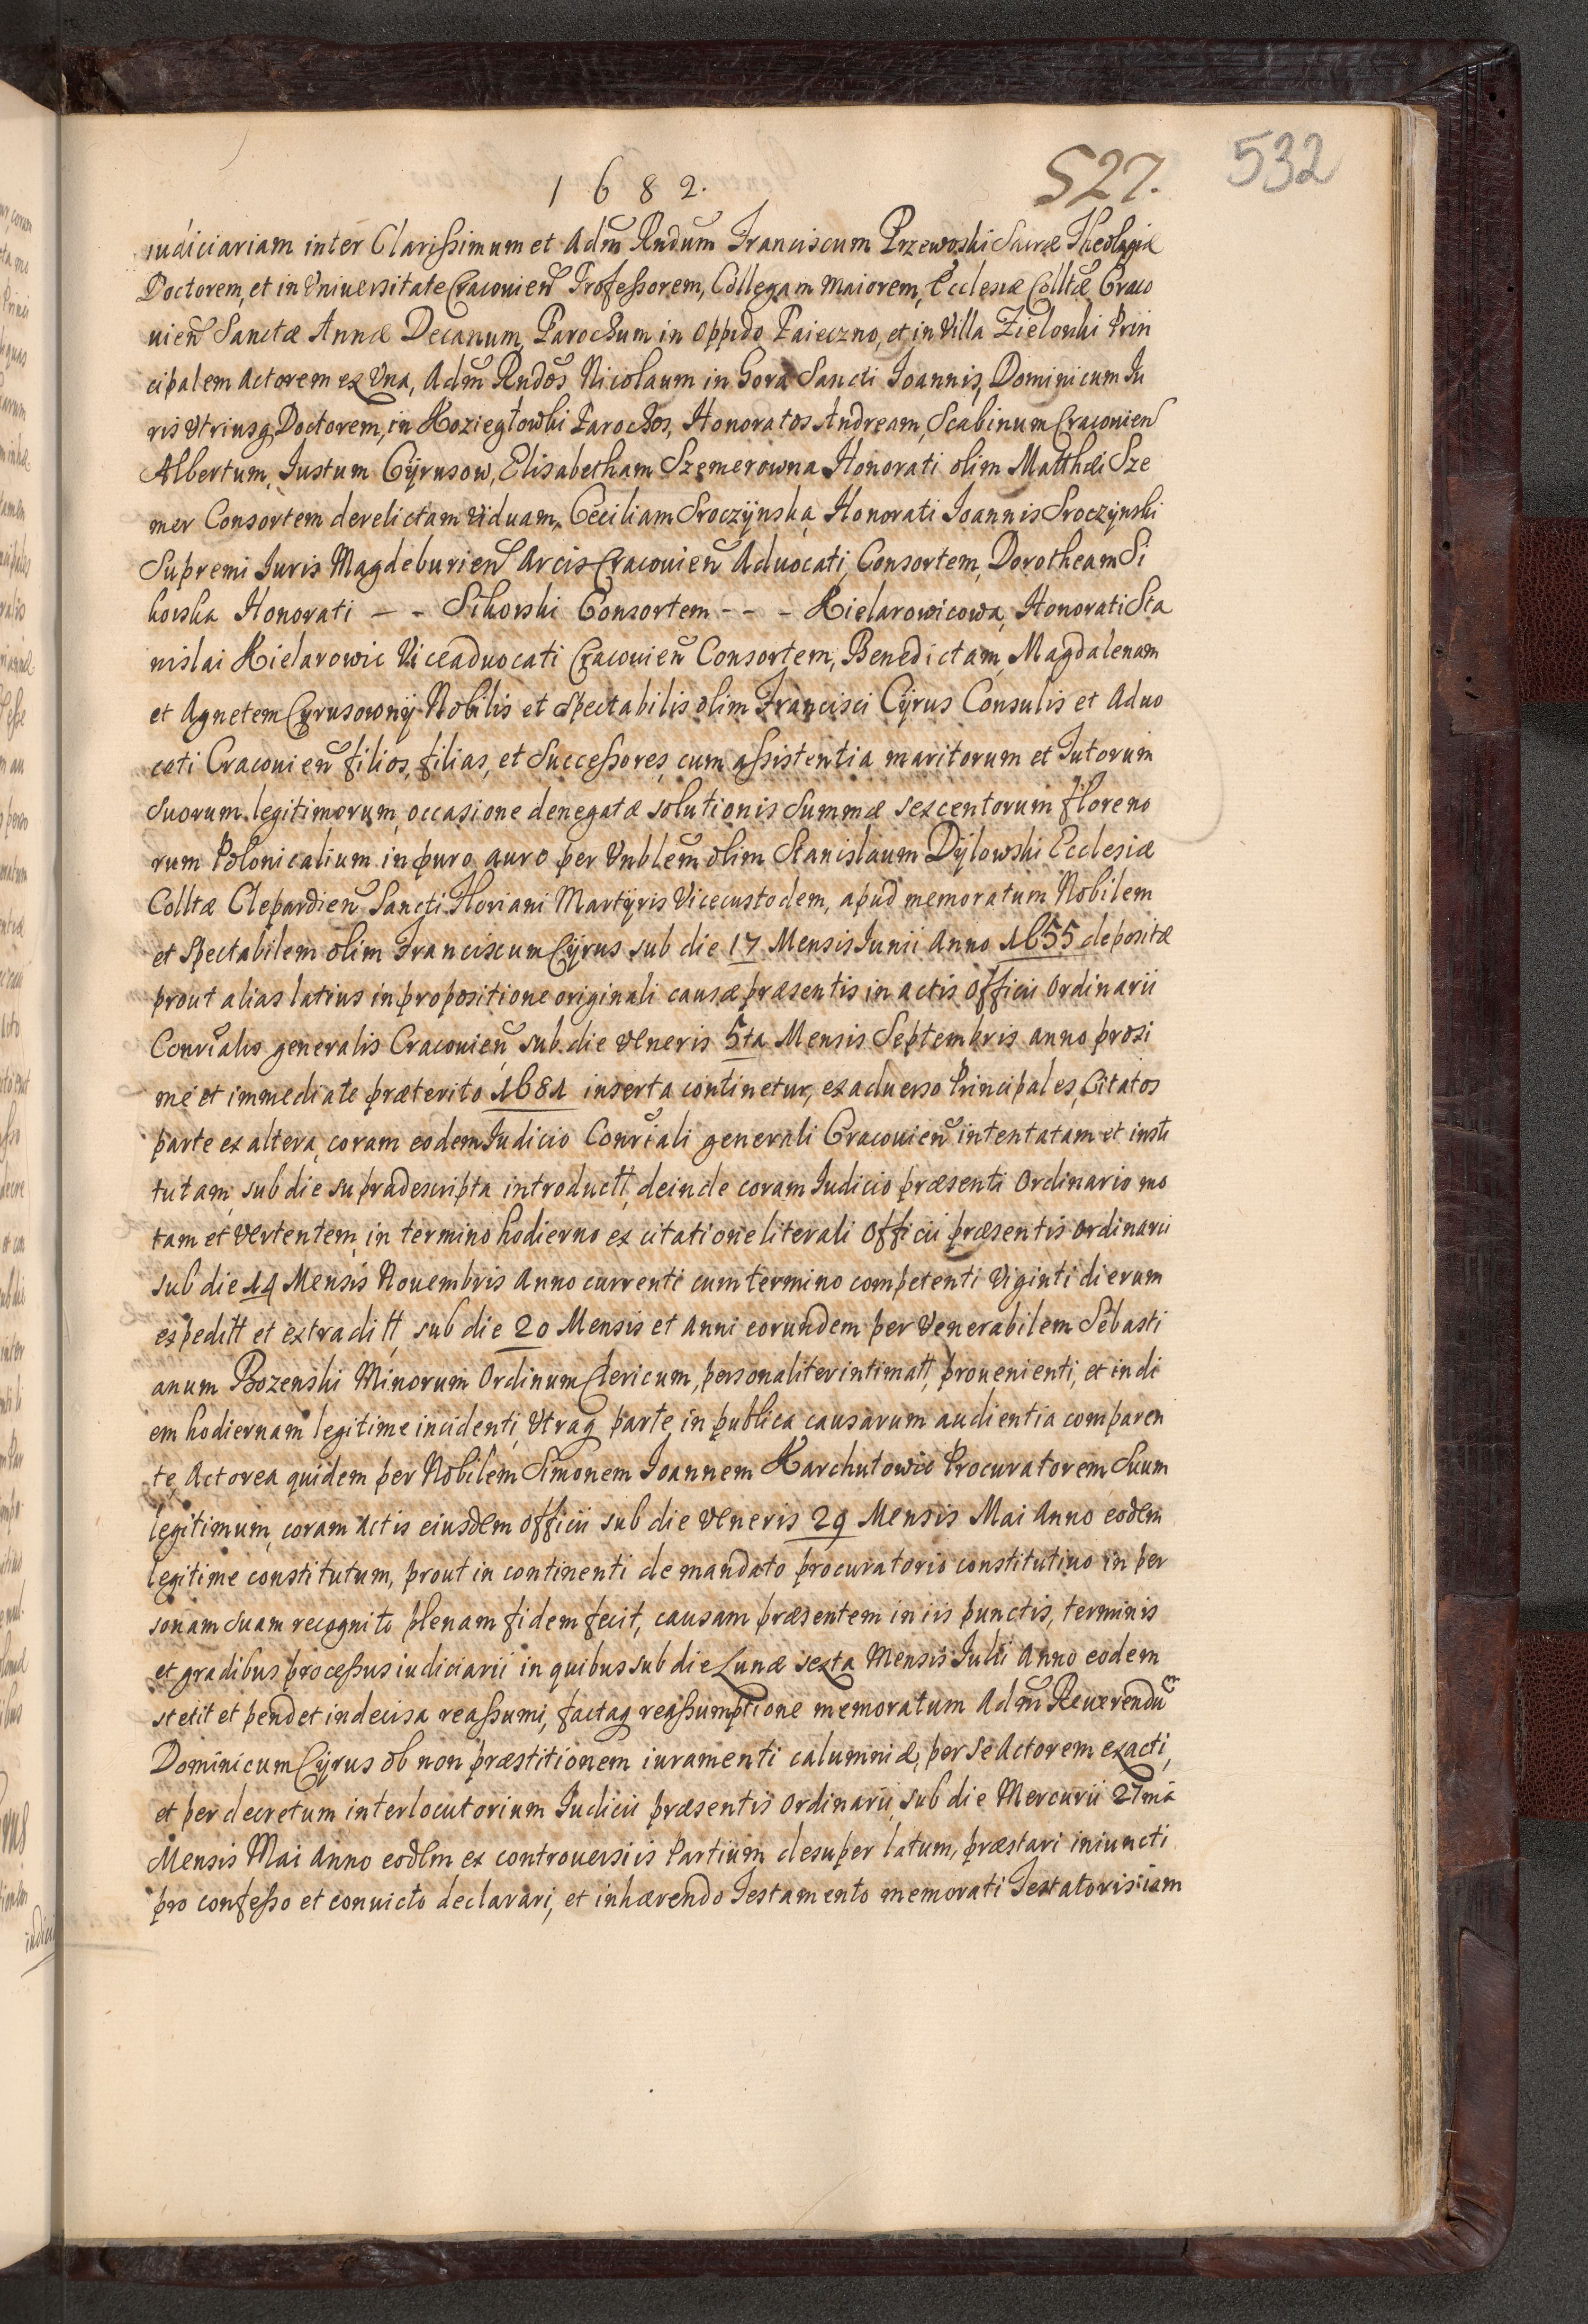 1682.
527.
532
iudiciariam inter Clarissimum et Adm̃ Rndum Franciscum Przewoski Sacræ Theologiæ
Doctorem, et in Vniuersitate Cracouień Professorem, Collegam Maiorem, Ecclesiæ Colltæ Craco
uień Sanctæ Annæ Decanum, Parochum in Oppido Paieczno, et in Villa Zielonki Prin
cipalem Actorem ex Vna, Adm̃ Rndos Nicolaum in Gora Sancti Joannis, Dominicum Iu
ris Vtriusq Doctorem, in Koziegłowki Parochos, Honoratos Andream, Scabinum Cracouień
Albertum, Iustum Cyrusow, Elisabetham Szemerowna Honorati olim Matthæi Sze
mer Consortem derelictam Viduam, Ceciliam Sroczynska Honorati Ioannis Sroczynski
Supremi Iuris Magdeburień Arcis Cracouień Aduocati, Consortem, Dorotheam Si
korska Honorati - - Sikorski Consortem - - - Kielarowicowa, Honorati Sta
nislai Kielarowic Viceaduocati Cracouień Consortem, Benedictam, Magdalenam
et Agnetem Cyrusowny Nobilis et Spectabilis olim Francisci Cyrus Consulis et Aduo
cati Cracouień filios, filias, et Successores, cum assistentia maritorum et Tutorum
Suorum legitimorum, occasione denegatæ solutionis Summæ sexcentorum floreno
rum Polonicalium in puro auro per Vnblem olim Stanislaum Dylowski Ecclesiæ
Colltæ Clepardień Sancti Floriani Martyris Vicecustodem, apud memoratum Nobilem
et Spectabilem olim Franciscum Cyrus sub die 17 Mensis Iunii Anno 1655 depositæ
prout alias latius in propositione originali causæ præsentis in actis Officii Ordinarii
Conrialis generalis Cracouień sub die Veneris 5ta Mensis Septembris anno proxi
me et immediate præterito 1681 inserta continetur, ex aduerso Principales, Citatos
parte ex altera, coram eodem Iudicio Conriali generali Cracouień intentatam et insti
tutam, sub die supradescripta introductt, deinde coram Iudicio præsenti Ordinario mo
tam et Vertentem, in termino hodierno ex citatione literali Officii præsentis Ordinarii
sub die 14 Mensis Nouembris Anno currenti cum termino competenti Viginti dierum
expeditt et extraditt, sub die 20 Mensis et Anni eorundem per Venerabilem Sebasti
anum Bozenski Minorum Ordinum Clericum, personaliter intimatt, prouenienti, et in di
em hodiernam legitime incidenti, Vtraq parte in publica causarum audientia comparen
te, Actorea quidem per Nobilem Simonem Ioannem Karchutowic Procuratorem Suum
legitimum, coram Actis eiusdem Officii sub die Veneris 29 Mensis Mai Anno eodem
legitime constitutum, prout in continenti de mandato procuratorio constitutiuo in per
sonam suam recognito plenam fidem fecit, causam præsentem in iis punctis, terminis
et gradibus processus iudiciarii in quibus sub die Lunæ sexta Mensis Iulii Anno eodem
stetit et pendet indecisa reassumi, factaq reassumptione memoratum Adm̃ Reuerendũ
Dominicum Cyrus ob non præstitionem iuramenti calumniæ, per se Actorem exacti,
et per decretum interlocutorium Iudicii præsentis Ordinarii, sub die Mercurii 27ma
Mensis Mai Anno eodem ex controuersiis Partium desuper latum, præstari iniuncti
pro confesso et conuicto declarari, et inhærendo Testamento memorati Testatoris iam